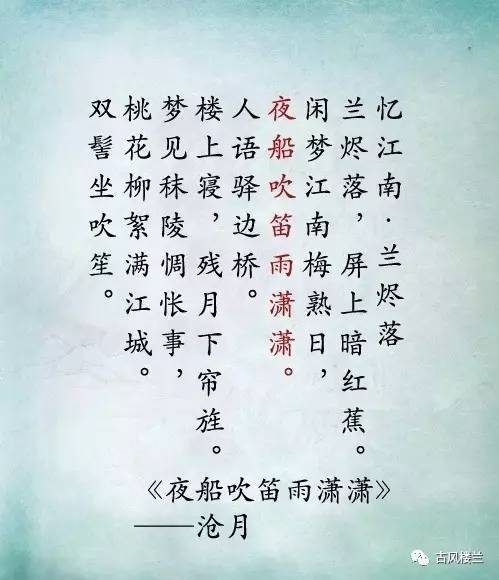 忆江南·兰烬落
兰烬落，屏上暗红蕉。
闲梦江南梅熟日，
夜船吹笛雨潇潇。
人语驿边桥。
楼上寝，残月下帘旌。
梦见秣陵惆怅事，
桃花柳絮满江城。
双髻坐吹笙。
《夜船吹笛雨潇潇》
——沧月
古风楼兰